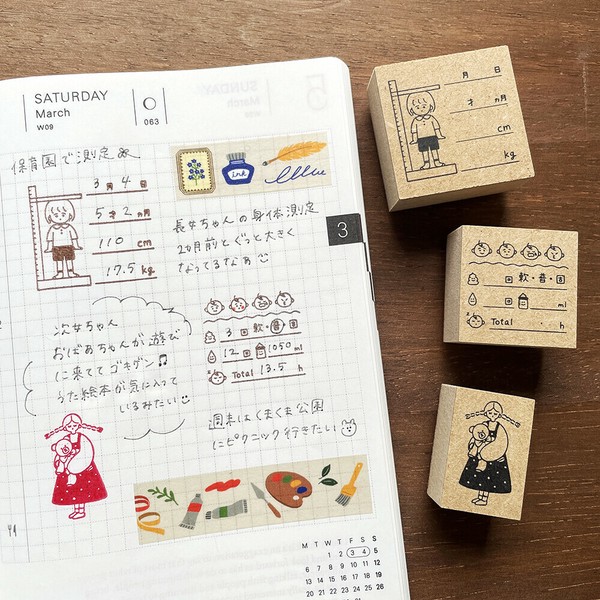 SATURDAY
March
W09
063
保育園で測定
3月 4日
5才 2ヵ月
110 cm
17.5 kg
ink
長女ちゃんの身体測定
2ヵ月前とぐっと大きく
なってるなぁ
3
次女ちゃん
おばあちゃんが遊び
に来ててゴキゲン♫
うた絵本が気に入って
いるみたい
3回 軟・普・固
12回 1050ml
Total 13.5 h
週末はくまくま公園
にピクニック行きたい
M T W T F S S
1 2 3 4 5
6 7 8 9 10 11 12
13 14 15 16 17 18 19
20 21 22 23 24 25 26
月 日
才 ヵ月
cm
kg
回 軟・普・固
回 ml
Total h